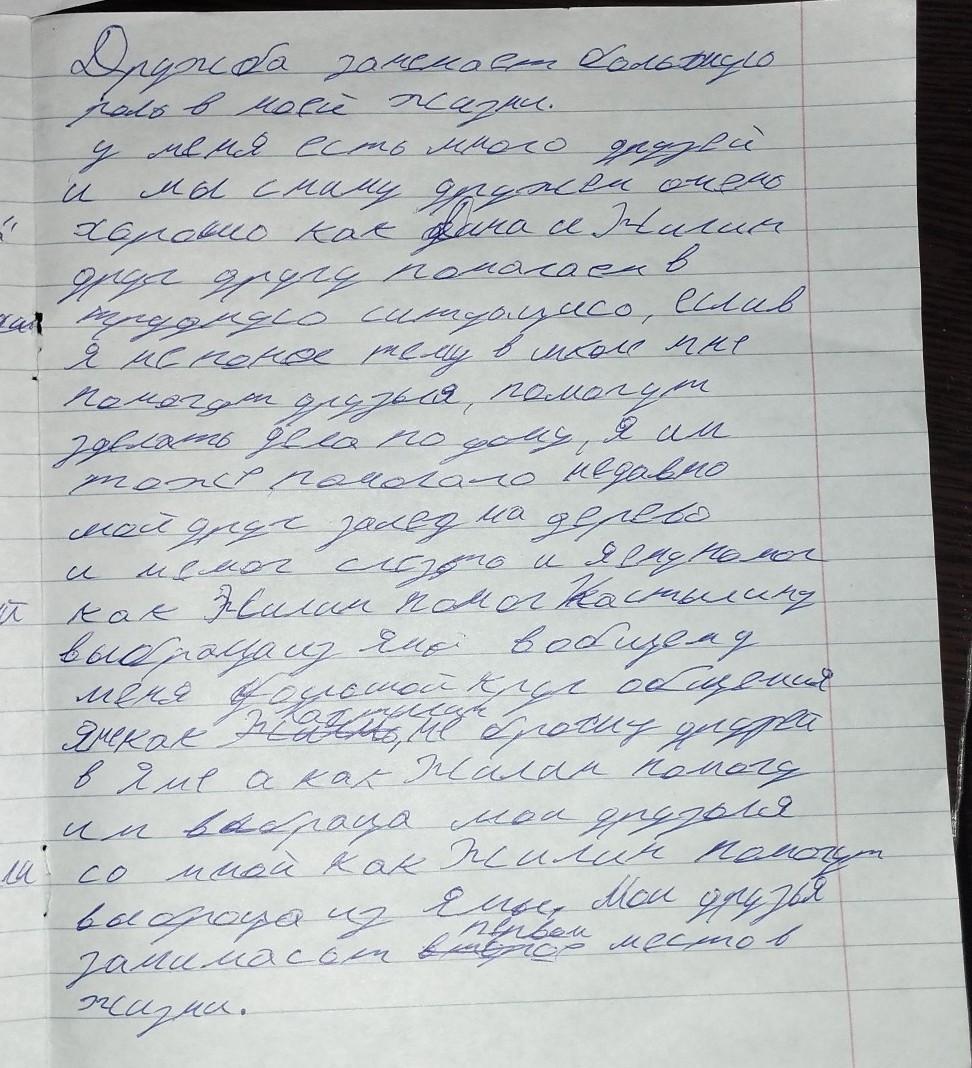 Дружба занемает большую
роль в моей жизни.
у меня есть много друзей
и мы с ниму дружем очень
хорошо как Дина и Жилин
друг другу помагаем в
ситуацию, если в
я не понел тему в школе мне
помогут друзья, помогут
зделать дела по дому, я им
тоже помогаю недавно
мой друг залез на дерево
и немог слезть и я ему помог
как Жилин помог Кастылину
выбраца из ямы вобщем у
меня большой круг общения
я не как Кастылин, не брошу друзей
в яме а как Жилин помогу
им выбраца мои друзья
со мной как Жилин помогут
выбраца из ямы. Мои друзья
занимают первое место в
жизни.